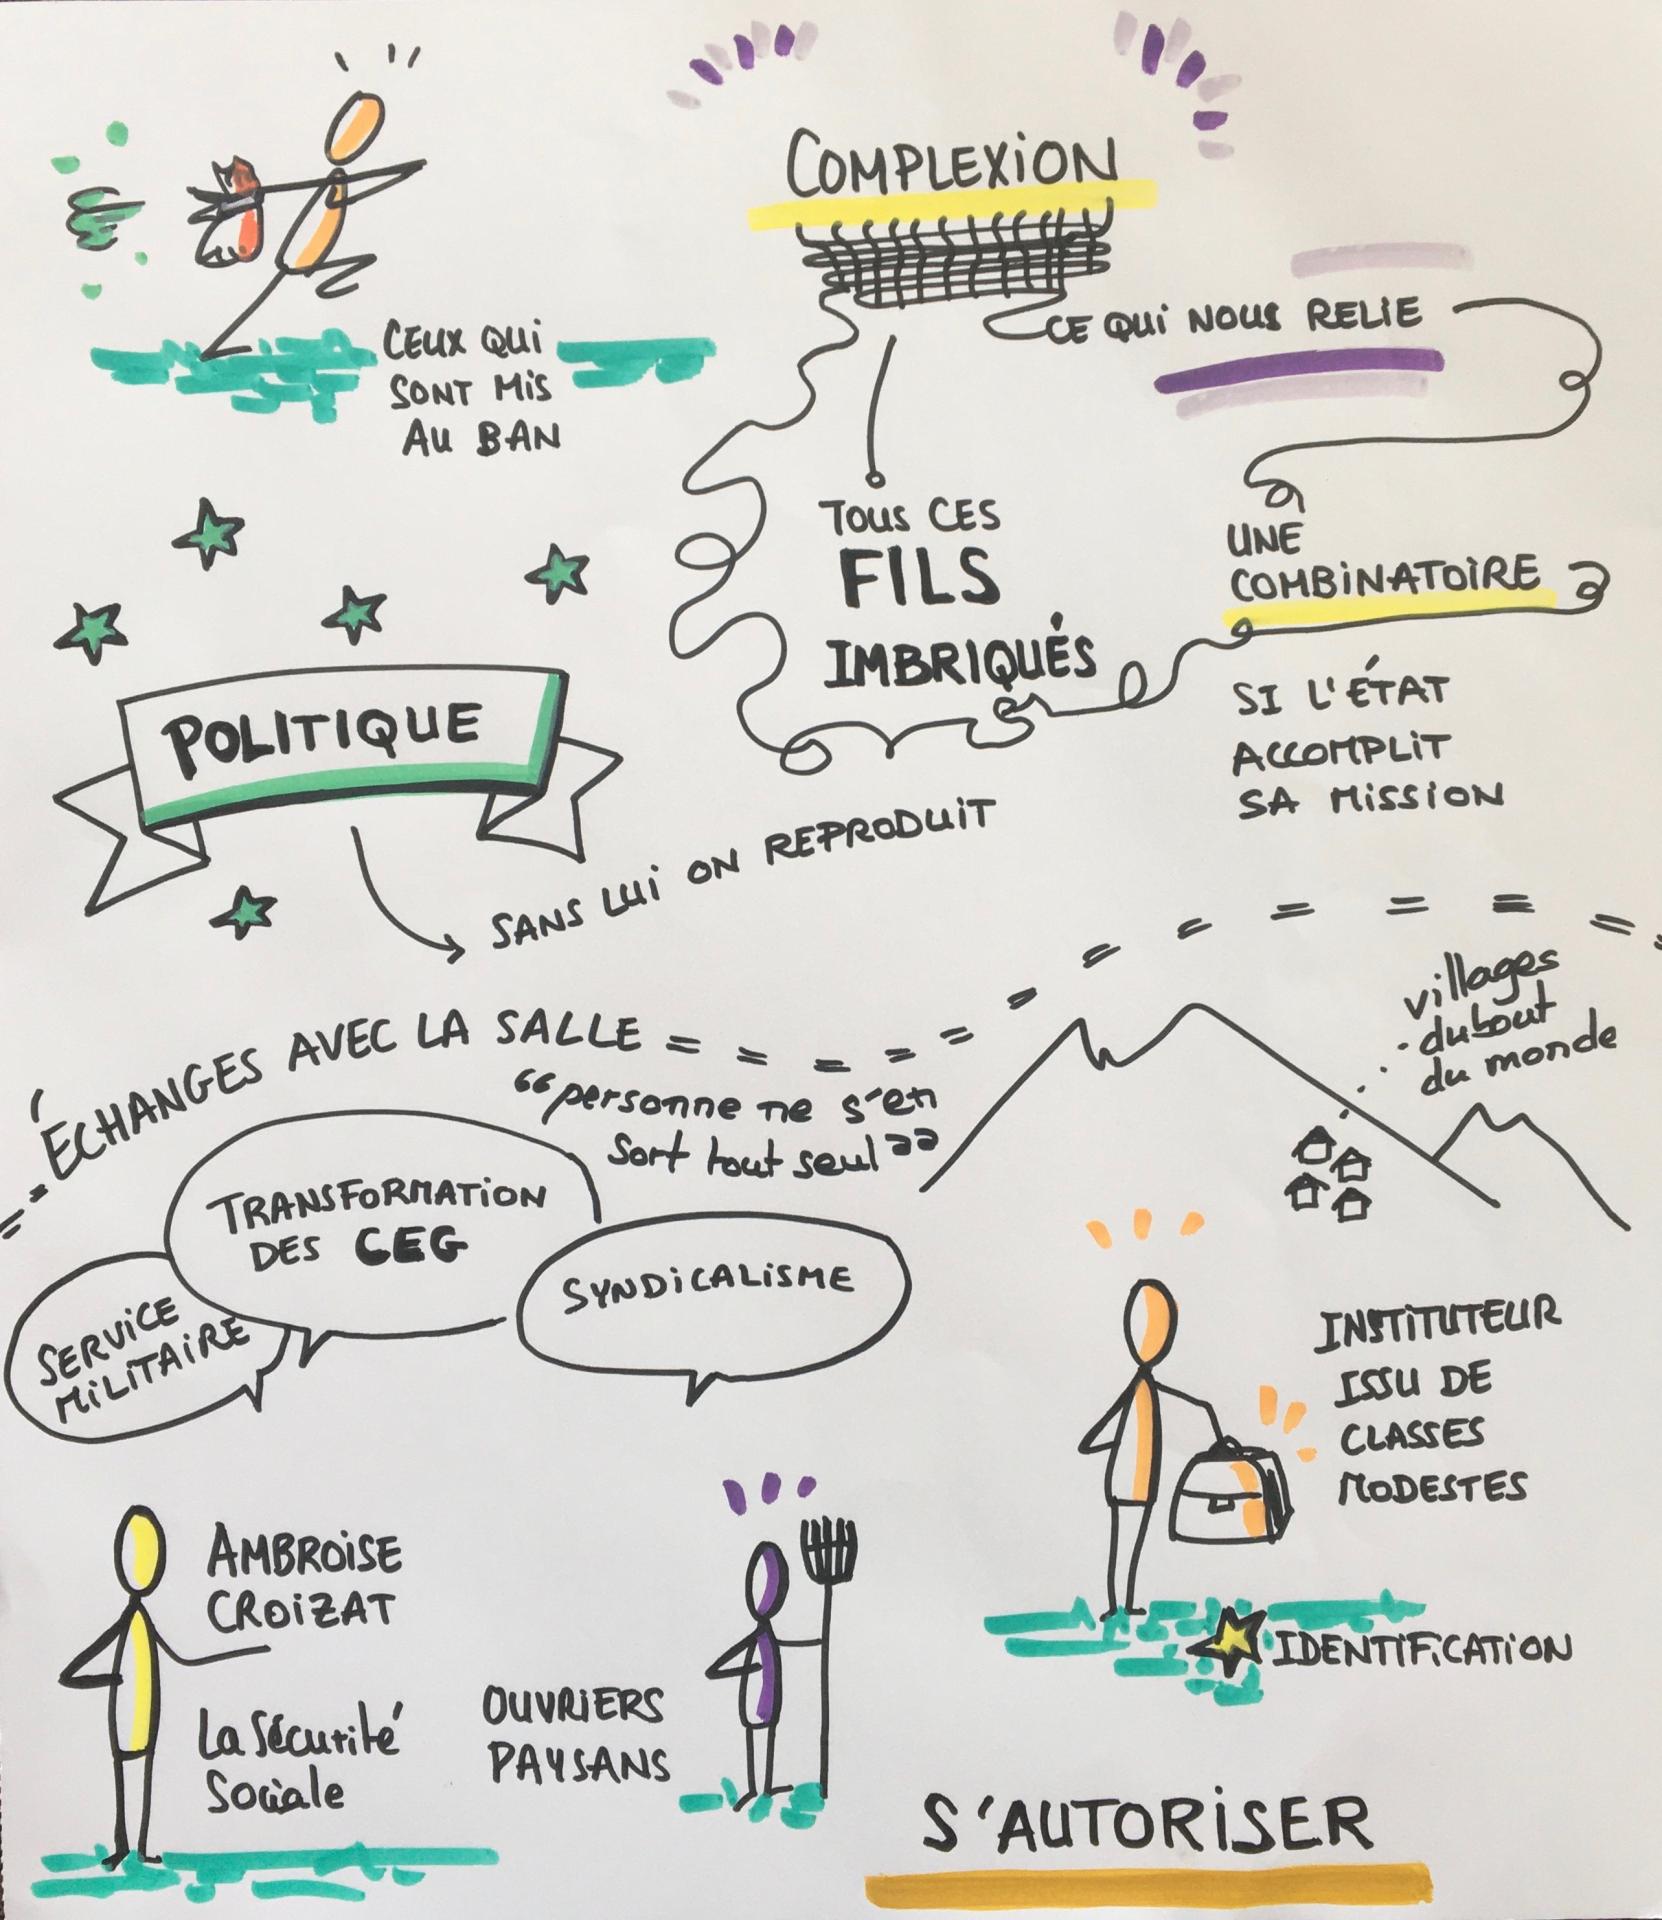 COMPLEXION
CEUX QUI
SONT MIS
AU BAN
CE QUI NOUS RELIE
TOUS CES
FILS
IMBRIQUÉS
UNE
COMBINATOIRE
SI L'ÉTAT
ACCOMPLIT
SA MISSION
POLITIQUE
SANS LUI ON REPRODUIT
ÉCHANGES AVEC LA SALLE
"personne ne s'en
sort tout seul"
villages
du bout
du monde
TRANSFORMATION
DES CEG
SERVICE
MILITAIRE
SYNDICALISME
INSTITUTEUR
ISSU DE
CLASSES
MODESTES
IDENTIFICATION
AMBROISE
CROIZAT
La Sécurité
Sociale
OUVRIERS
PAYSANS
S'AUTORISER